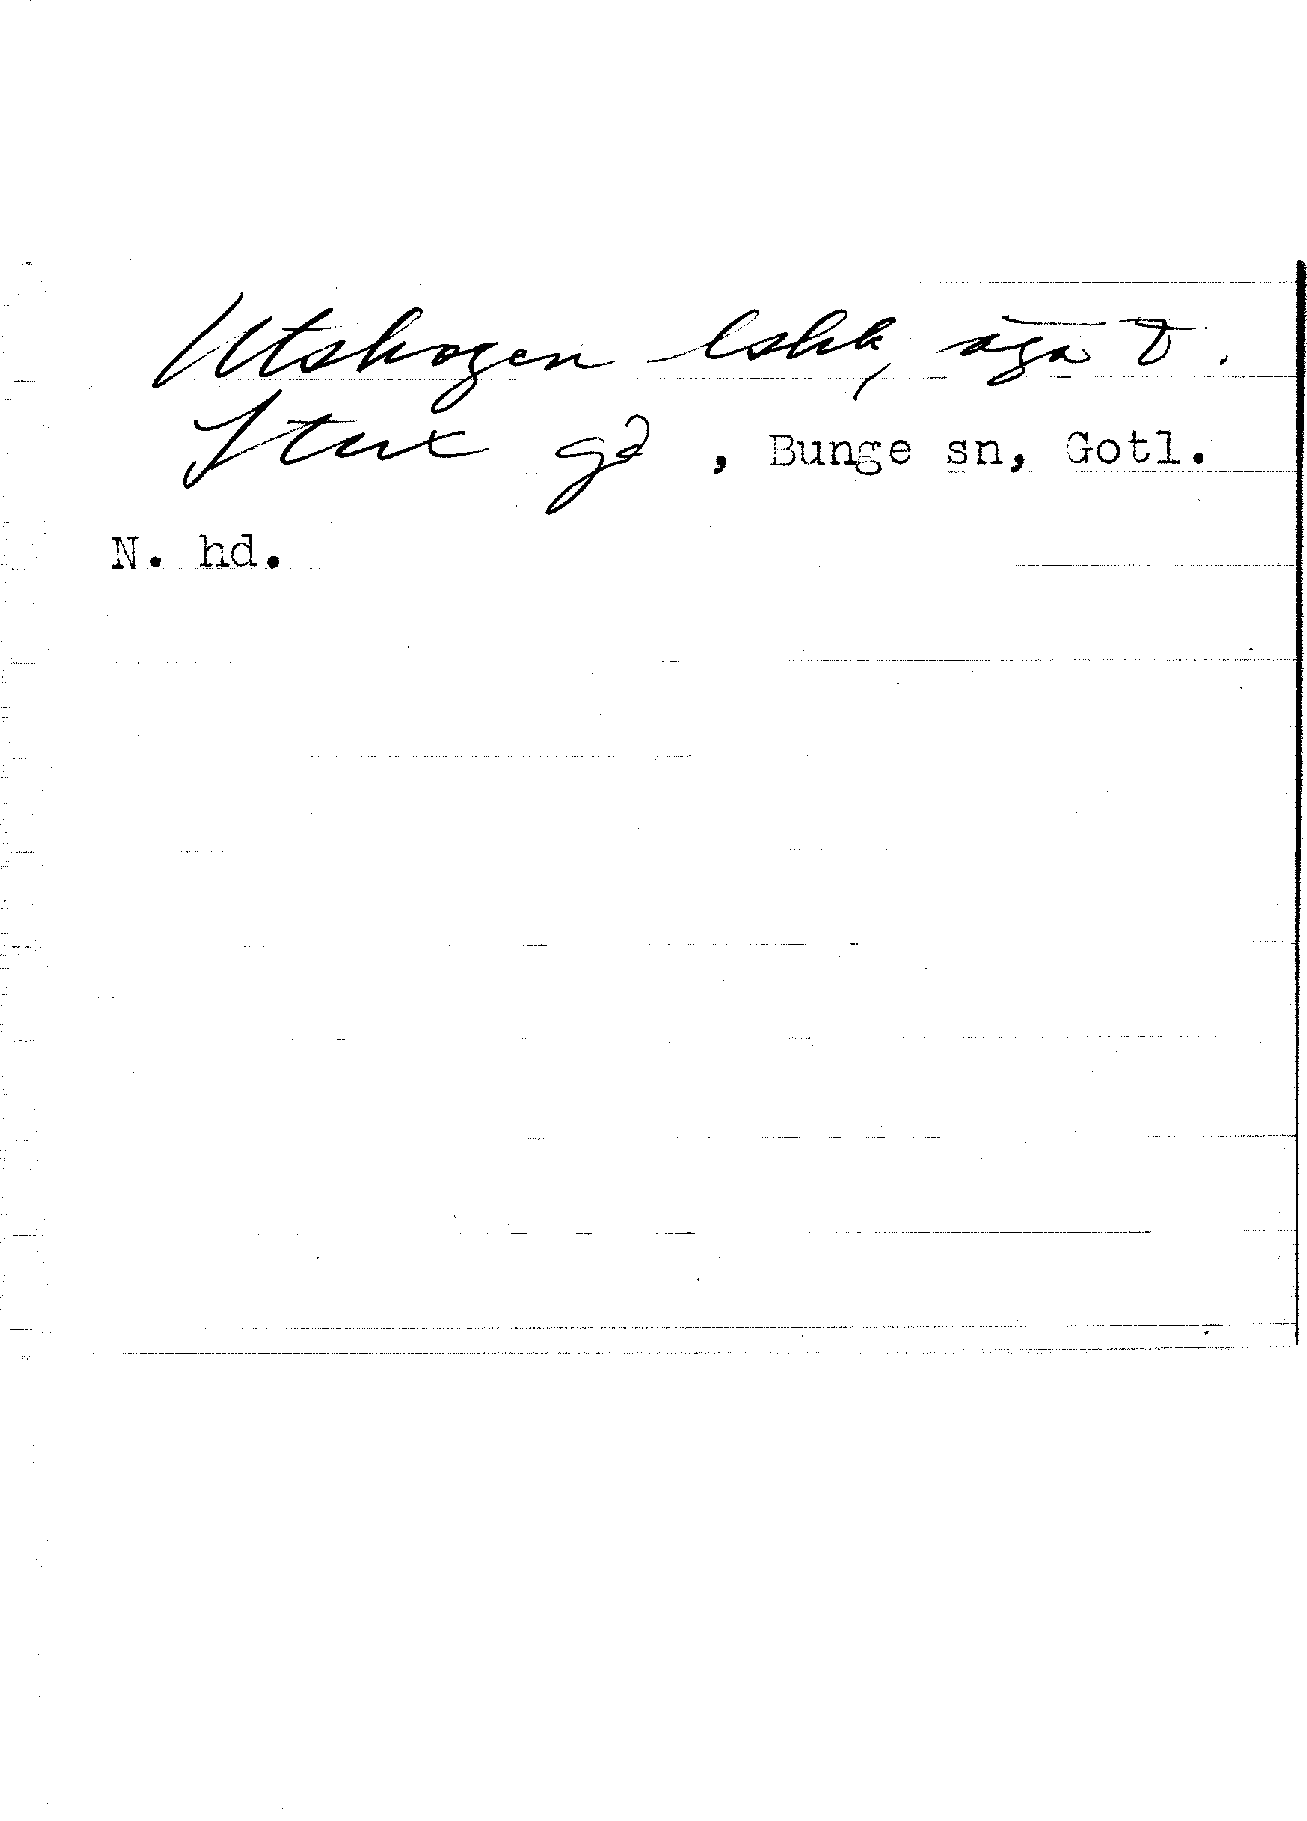 Utskogen lskk, äga t.
Stux gd, Bunge sn, Gotl.
N. hd.